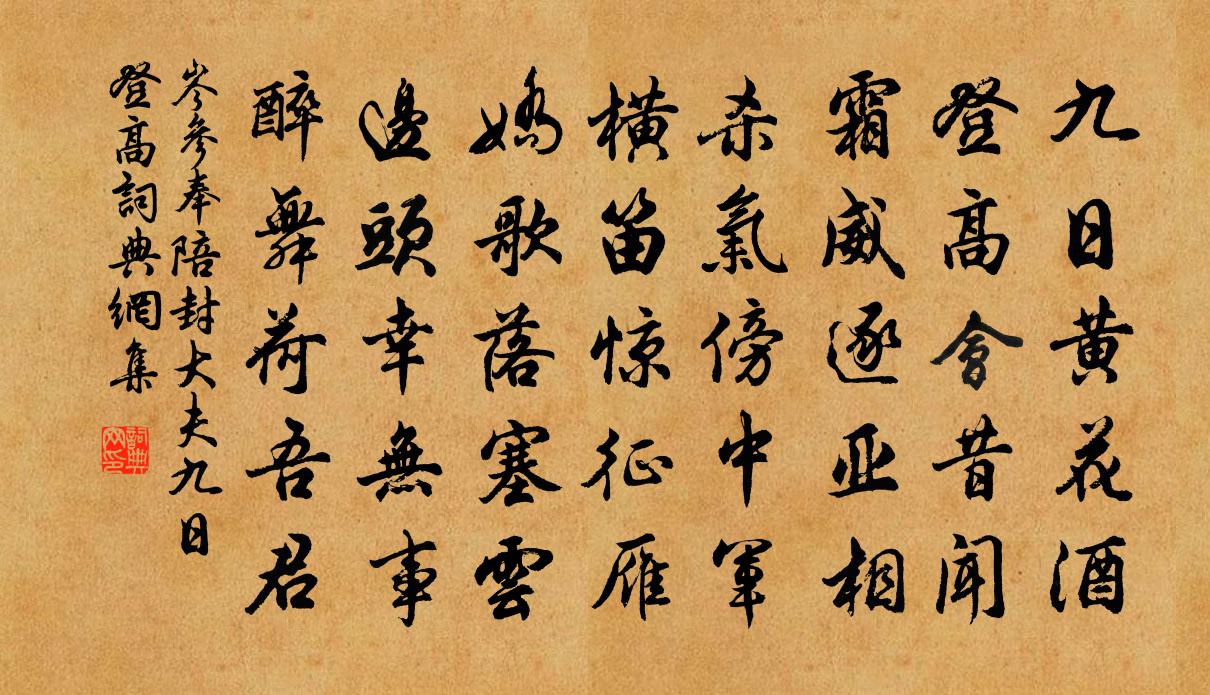 九日黄花酒
登高會昔聞
霜威逐亚相
杀氣傍中軍
橫笛惊征雁
嬌歌落塞雲
邊頭幸無事
醉舞荷吾君
岑參奉陪封大夫九日
登高詞典網集
詞典
网印